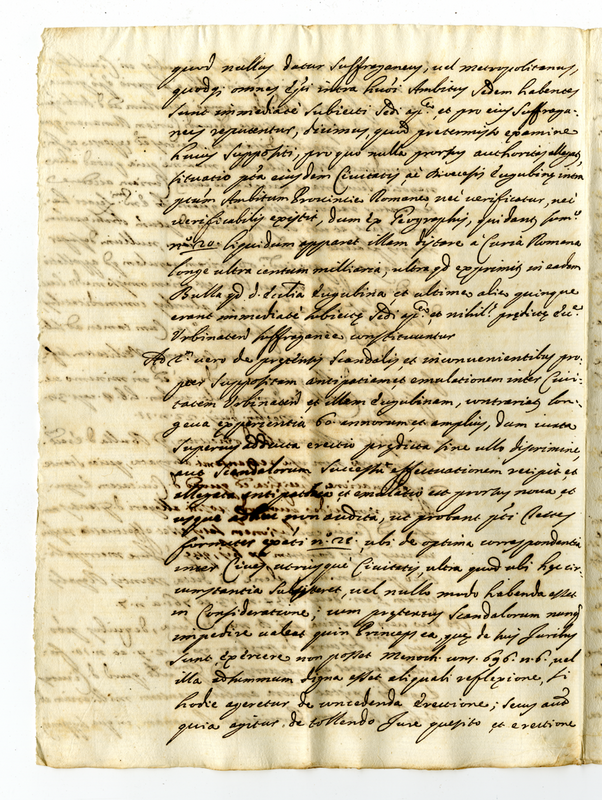 quod nullus datur suffraganeus, vel metropolitanus,
quodq; omnes Epi intra huoi Ambitus sedem habentes
sunt immediatè subiecti sedi ap.cę et pro eius suffraga-
neis reputentur, decimus, quod pretermisso examine
huius suppositi, pro quo nulla prorsus authoritas allegat,
situatio pta eiusdem Civitatis, ac Diocesis Eugubinę intra
ptum Ambitum Provincię Romanę nec verificatur, nec
verificabilis existit, dum ex Geographis, quidant, som.
n.º 20. liquidum apparet illam distare à Curia Romana
longe ultra centum milliaria, ultra qd exprimit in eadem
Bulla qd d. Ecclia Eugubina et ultime alie quinque
erant immediatè subiectę sedi ap.cę, et nihil. predictę Ec.ę
Urbinaten suffraganee constituuntur
Ad 2.m vero de pretensis scandalis, et inconvenientibus pro-
pter suppositam antipatiam et emulationem inter Civi-
tatem Urbinaten et illam Eugubinam, contrarium lon-
geua experientia 60. annorum et amplius, dum iuxta
superius adducta erectio predicta sine ullo discrimine,
aut scandalorum successu effectuationem recipit, et
allegata antipathia et emulatio est prorsus noua, et
usque adhuc non audita, ut probant pti testes
formiter exati n.º 28. ubi de optima correspondentia
inter Cives utriusque Civitatis, ultra quod ubi hęc cir-
cumstantia subsisteret, vel nullo modo habenda esset
in Consideratione; cum pretextus scandalorum nunq
impedire valeat quin Princeps ea, quę de sui Juribus
sunt exercere non posset Menoch. cons. 696. n. 6. vel
illa ad summum digna esset aliquali reflexione, si
hodie ageretur de concedenda Erectione; secus aut
quia agitur de tollendo Jure quesito et erectione